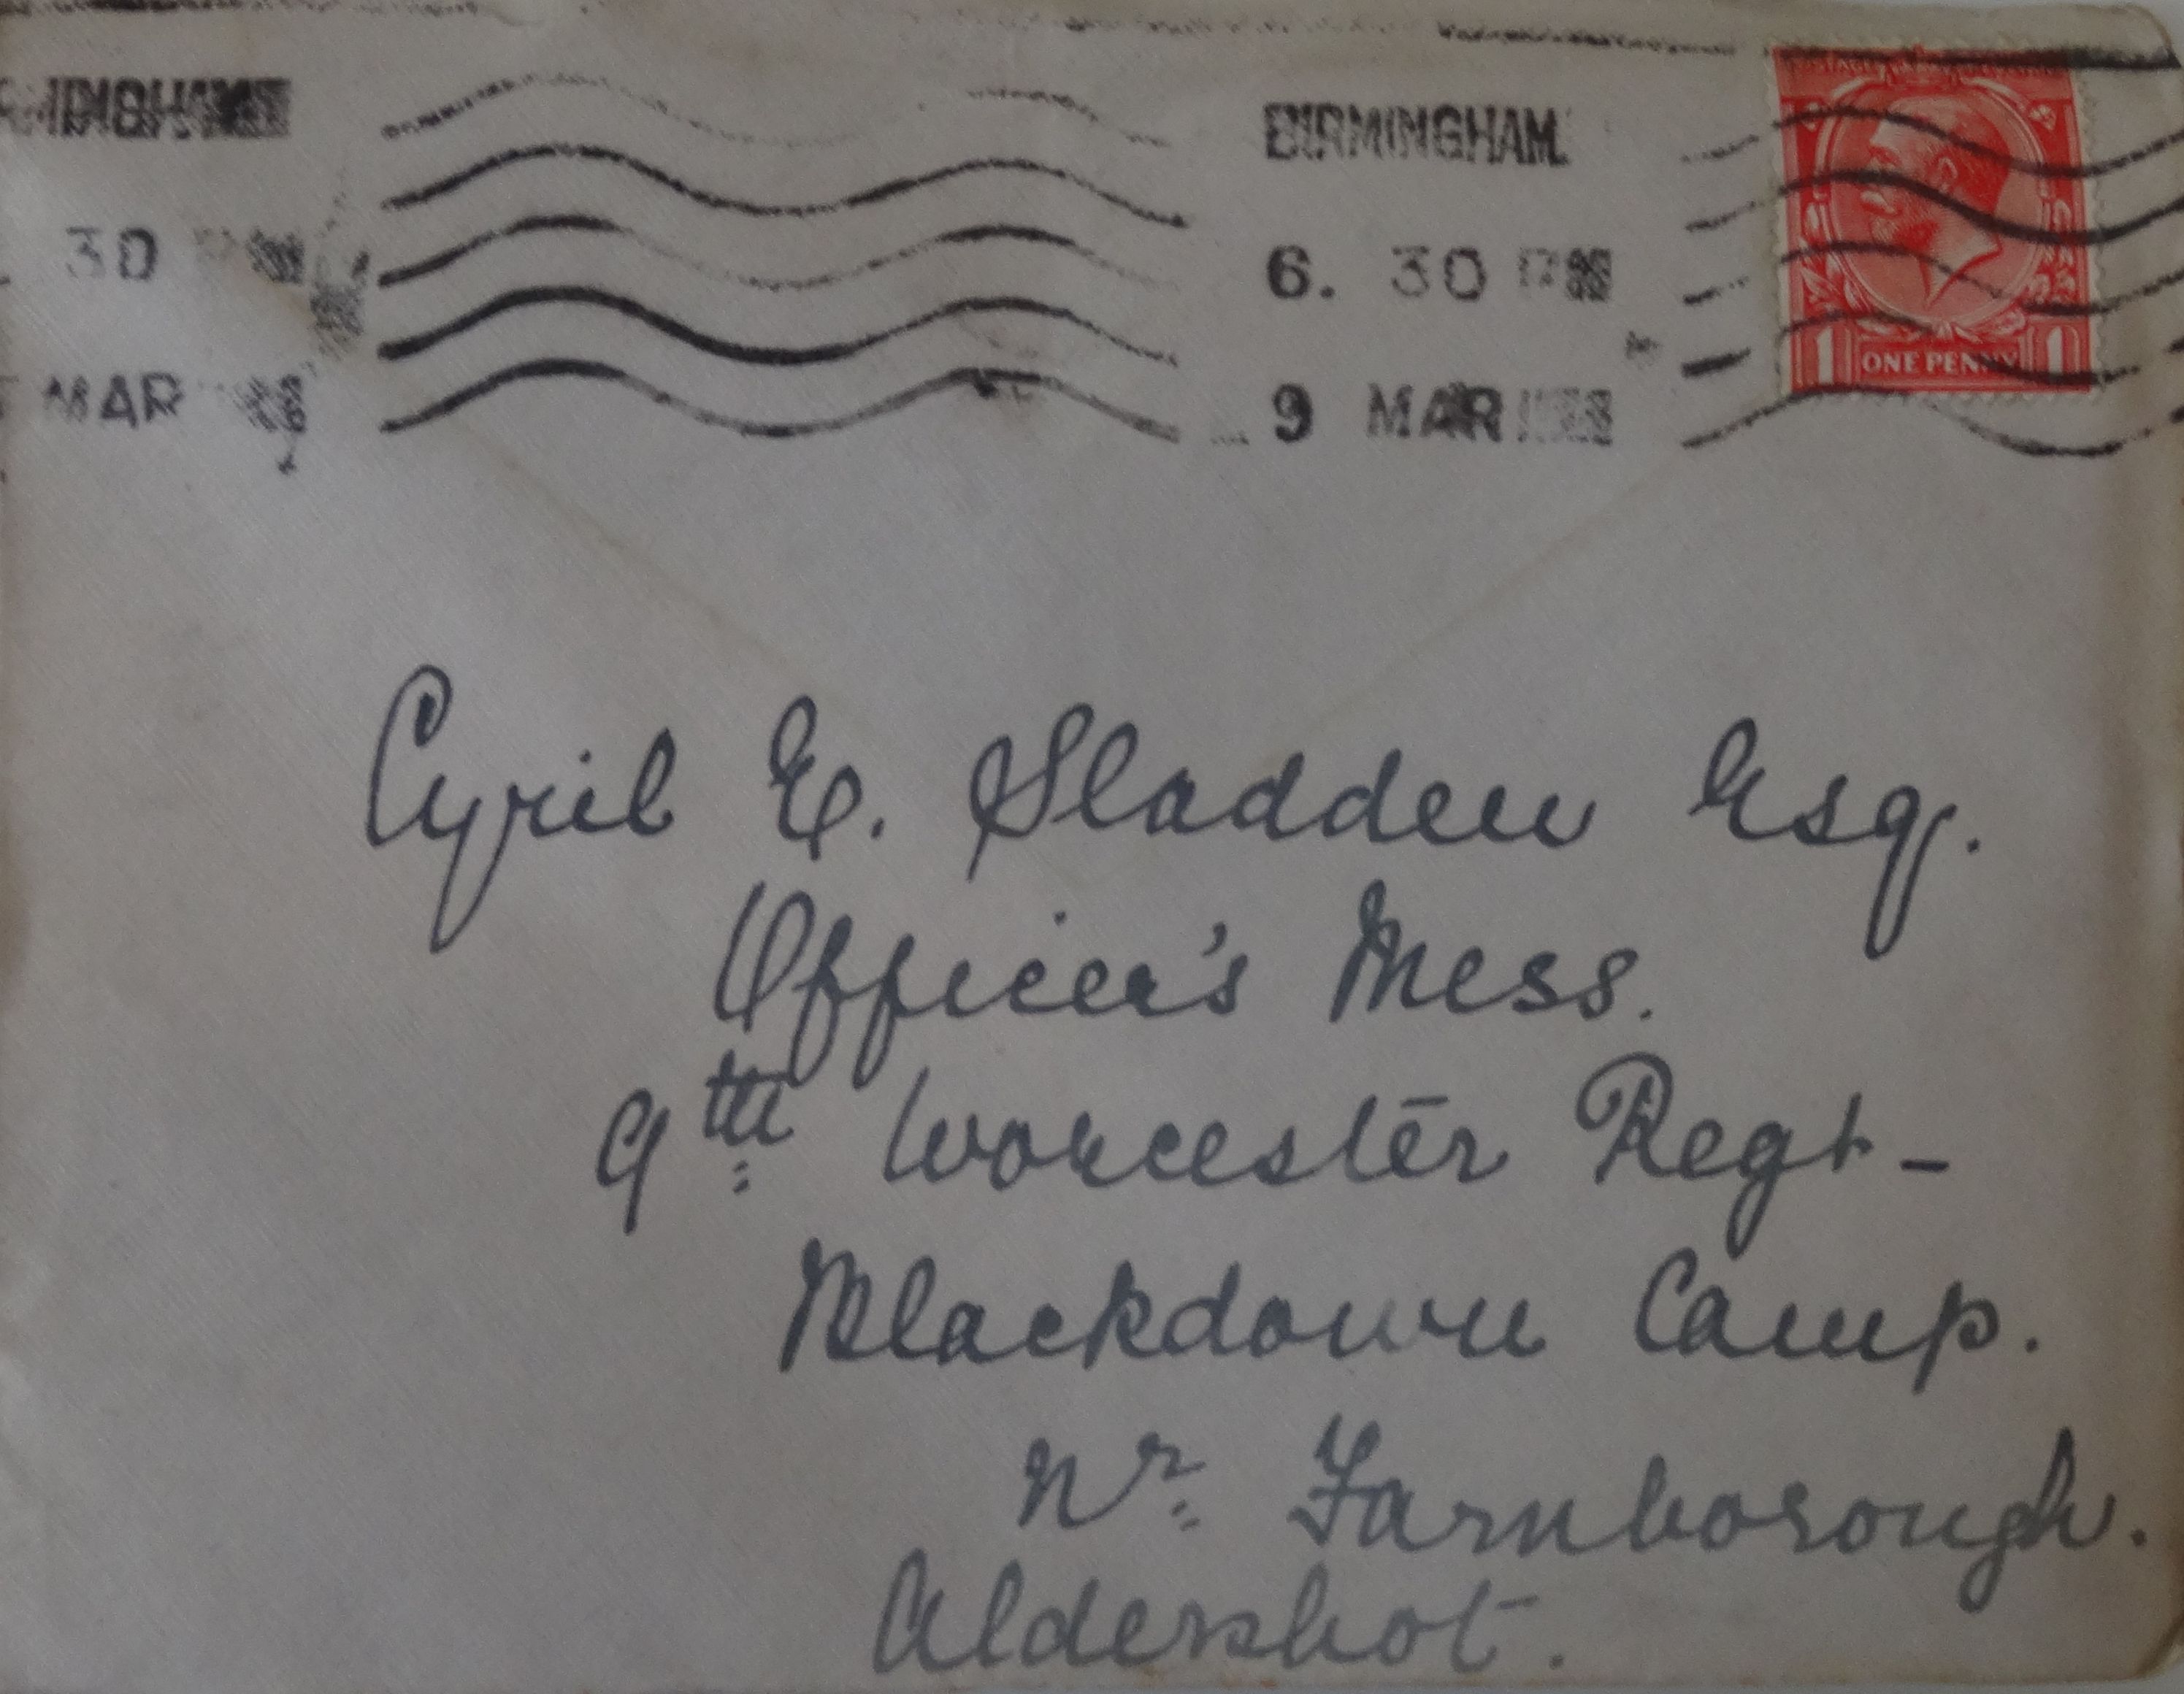 BIRMINGHAM
30
MAR
BIRMINGHAM
6. 30 PM
9 MAR
1 ONE PENNY 1
Cyril E. Sladden Esq.
Officer's Mess.
9th Worcester Regt -
Blackdown Camp.
Nr Farnborough.
Aldershot.